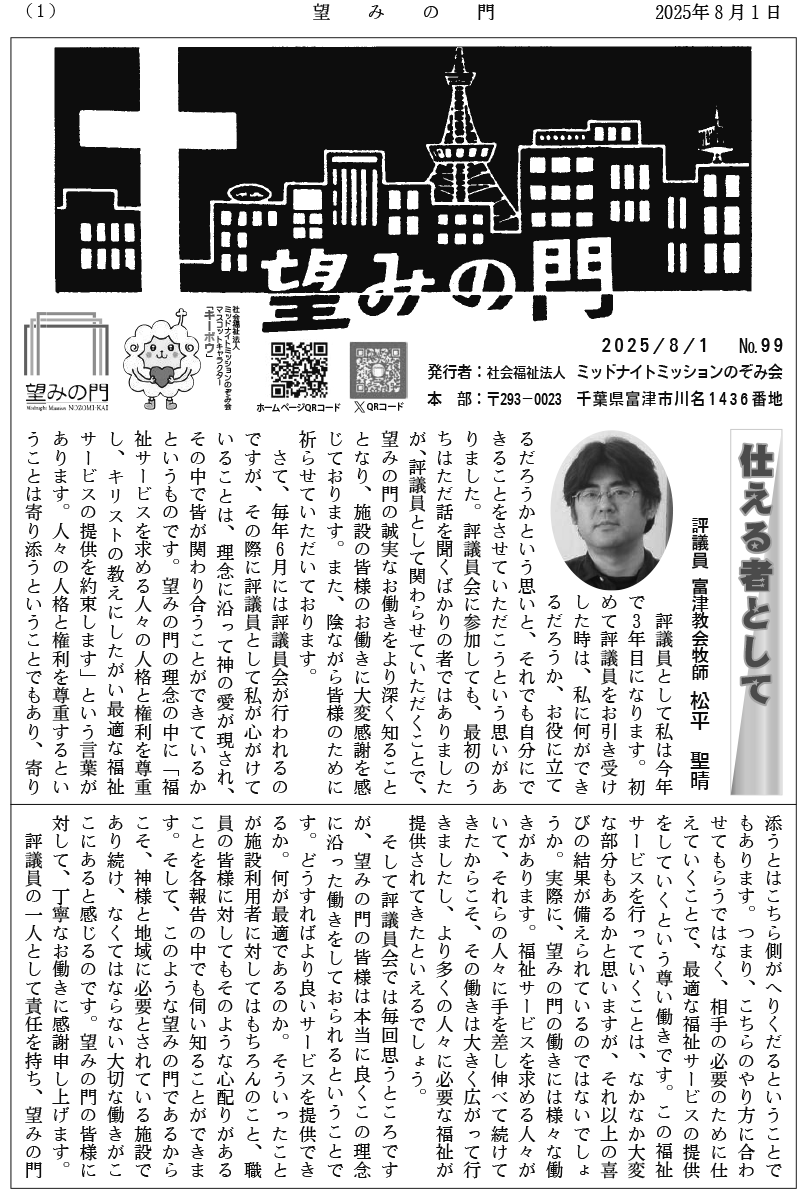 （1）
望みの門
2025年８月１日
望みの門
望みの門
Midnight Mission NOZOMI-KAI
社会福祉法人
ミッドナイトミッションのぞみ会
マスコットキャラクター
「キーボウ」
ホームページQRコード
X QRコード
2025/8/1　№99
発行者：社会福祉法人　ミッドナイトミッションのぞみ会
本　部：〒293－0023　千葉県富津市川名1436番地
仕える者として
評議員　富津教会牧師　松平　聖晴
　評議員として私は今年
で３年目になります。初
めて評議員をお引き受け
した時は、私に何ができ
るだろうか、お役に立て
るだろうかという思いと、それでも自分にで
きることをさせていただこうという思いがあ
りました。評議員会に参加しても、最初のう
ちはただ話を聞くばかりの者ではありました
が、評議員として関わらせていただくことで、
望みの門の誠実なお働きをより深く知ること
となり、施設の皆様のお働きに大変感謝を感
じております。また、陰ながら皆様のために
祈らせていただいております。
　さて、毎年６月には評議員会が行われるの
ですが、その際に評議員として私が心がけて
いることは、理念に沿って神の愛が現され、
その中で皆が関わり合うことができているか
というものです。望みの門の理念の中に「福
祉サービスを求める人々の人格と権利を尊重
し、キリストの教えにしたがい最適な福祉
サービスの提供を約束します」という言葉が
あります。人々の人格と権利を尊重するとい
うことは寄り添うということでもあり、寄り
添うとはこちら側がへりくだるということで
もあります。つまり、こちらのやり方に合わ
せてもらうではなく、相手の必要のために仕
えていくことで、最適な福祉サービスの提供
をしていくという尊い働きです。この福祉
サービスを行っていくことは、なかなか大変
な部分もあるかと思いますが、それ以上の喜
びの結果が備えられているのではないでしょ
うか。実際に、望みの門の働きには様々な働
きがあります。福祉サービスを求める人々が
いて、それらの人々に手を差し伸べて続けて
きたからこそ、その働きは大きく広がって行
きましたし、より多くの人々に必要な福祉が
提供されてきたといえるでしょう。
　そして評議員会では毎回思うところです
が、望みの門の皆様は本当に良くこの理念
に沿った働きをしておられるということで
す。どうすればより良いサービスを提供でき
るか。何が最適であるのか。そういったこと
が施設利用者に対してはもちろんのこと、職
員の皆様に対してもそのような心配りがある
ことを各報告の中でも伺い知ることができま
す。そして、このような望みの門であるから
こそ、神様と地域に必要とされている施設で
あり続け、なくてはならない大切な働きがこ
こにあると感じるのです。望みの門の皆様に
対して、丁寧なお働きに感謝申し上げます。
　評議員の一人として責任を持ち、望みの門